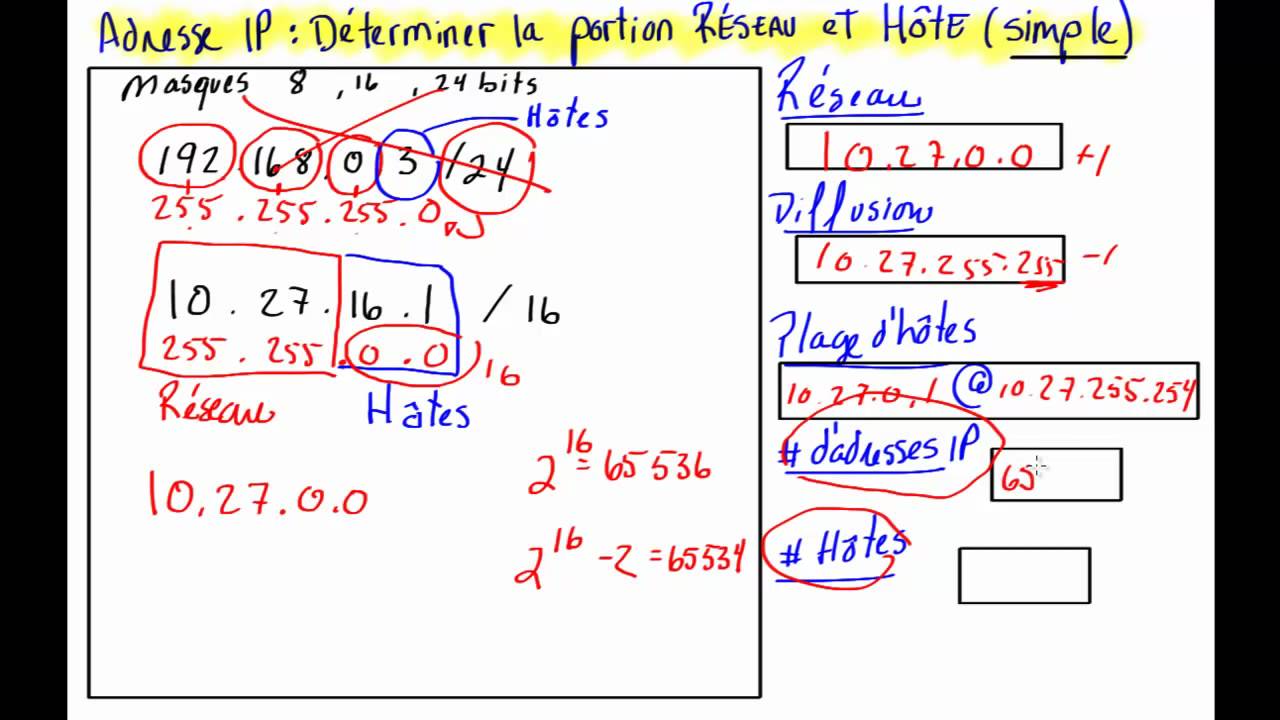 Adresse IP : Déterminer la portion RÉSEAU et HÔTE (simple)
Masques 8 , 16 , 24 bits
Hôtes
192 . 168 . 0 3 /24
255 . 255 . 255 . 0
10 . 27 . 16 . 1 / 16
255 . 255 . 0 . 0
16
Réseau Hôtes
10.27.0.0
2^16 = 65 536
2^16 - 2 = 65534
Réseau
10.27.0.0 +1
Diffusion
10.27.255.255 -1
Plage d'hôtes
10.27.0.1 @ 10.27.255.254
# d'adresses IP
65
# Hôtes